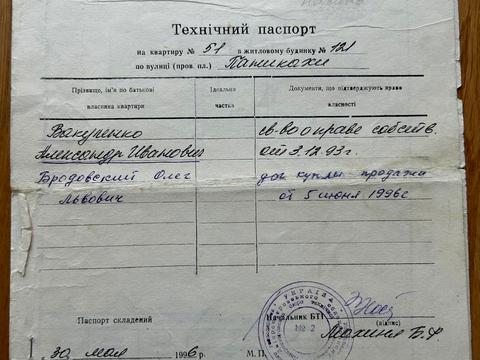 Технічний паспорт
на квартиру № 51 в житловому будинку № 121
по вулиці (пров. пл.) Паникахи
Прізвище, ім'я по батькові власника квартири
Ідеальна частка
Документи, що підтверджують право власності
Вакуленко св-во о праве собств.
Александр Иванович от 3.12.93г.
Бродовский Олег дог купли продажи
Львович от 5 июня 1996г
УКРАЇНА
№ 2
Паспорт складений Начальник БТІ
(підпис)
Махиня Б.Ф
30 мая 1996 г. М.П.